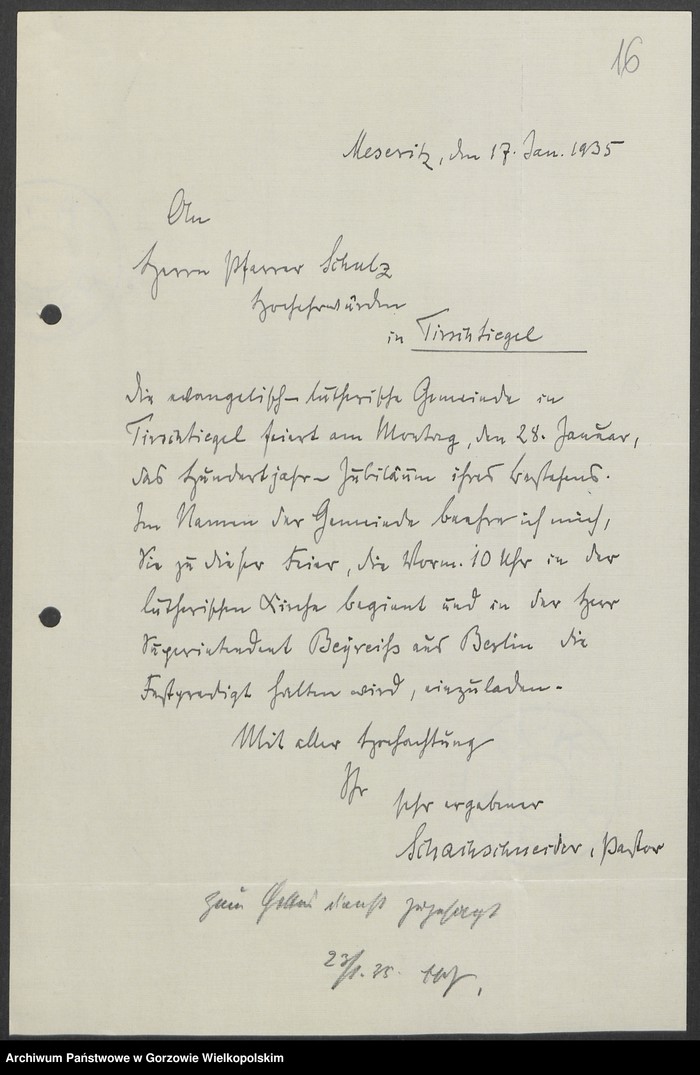 16
Meseritz, den 17. Jan. 1935
An
Herrn Pfarrer Schulz
Hochehrwürden
in Tirschtiegel
Die evangelisch-lutherische Gemeinde in
Tirschtiegel feiert am Montag, den 28. Januar,
das Hundertjahr-Jubiläum ihres Bestehens.
Im Namen der Gemeinde beehre ich mich,
Sie zu dieser Feier, die Vorm. 10 Uhr in der
lutherischen Kirche beginnt und in der Herr
Superintendent Beyreiß aus Berlin die
Festpredigt halten wird, einzuladen.
Mit aller Hochachtung
Ihr
sehr ergebener
Schachschneider, Pastor
zum Gottesdienst zugesagt
23/1. 35.
Archiwum Państwowe w Gorzowie Wielkopolskim